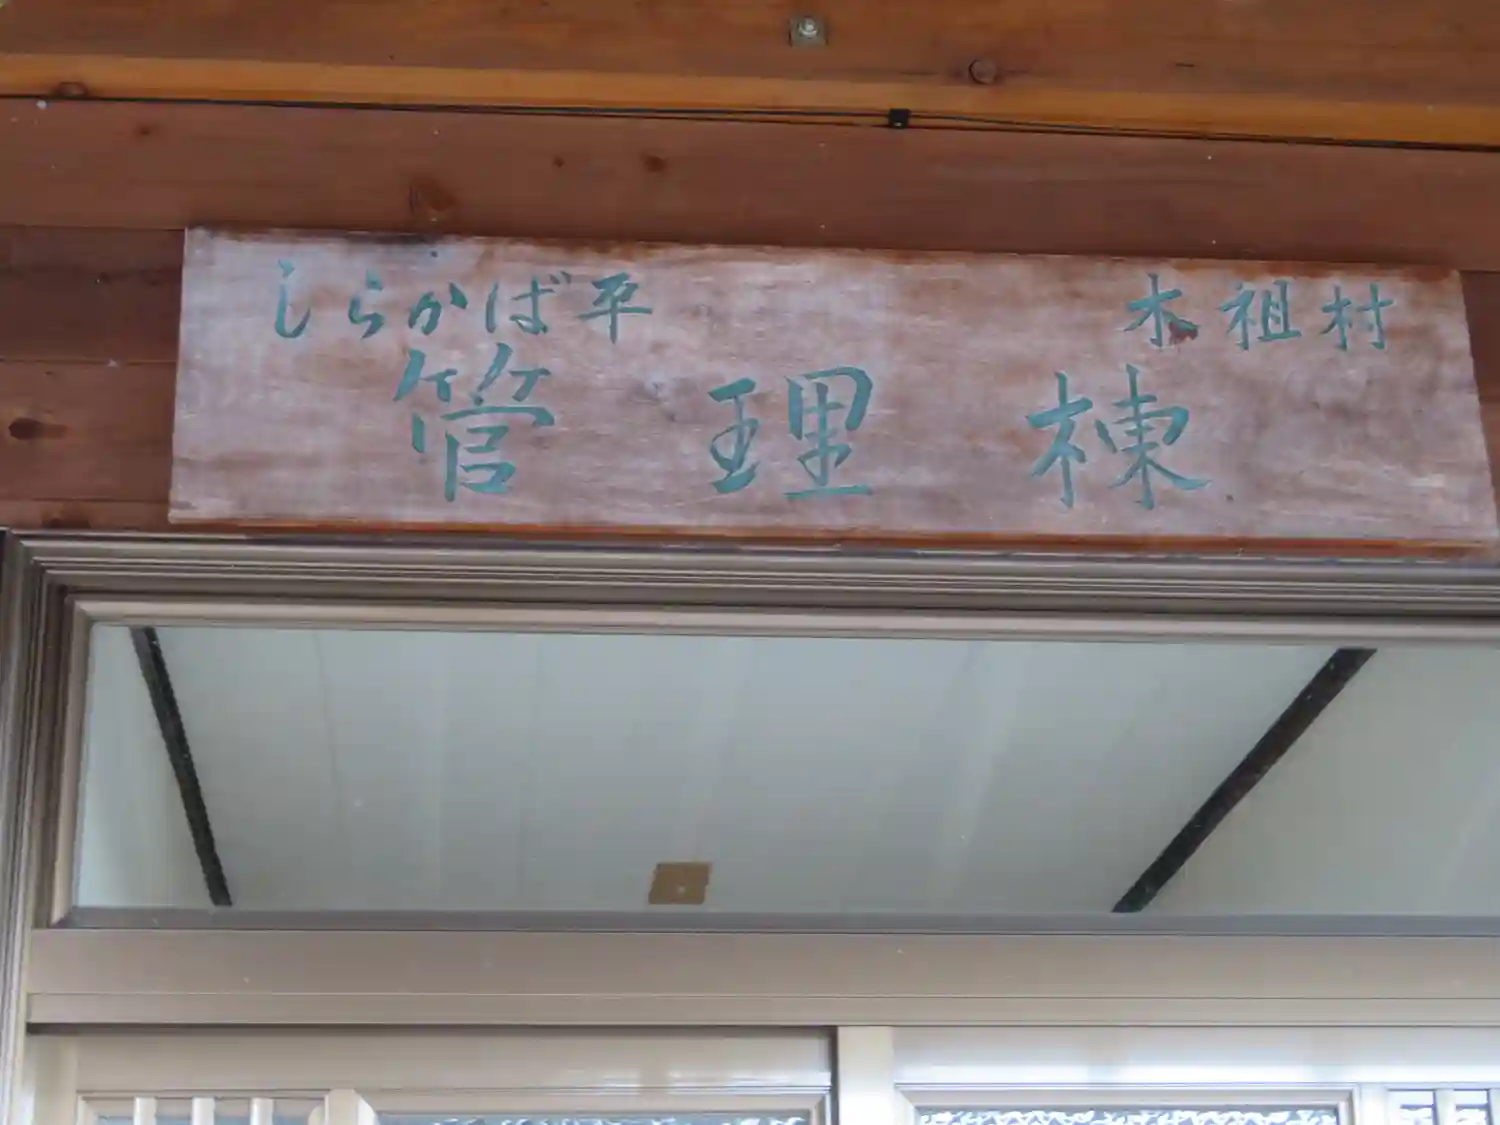 しらかば平 木祖村
管理棟